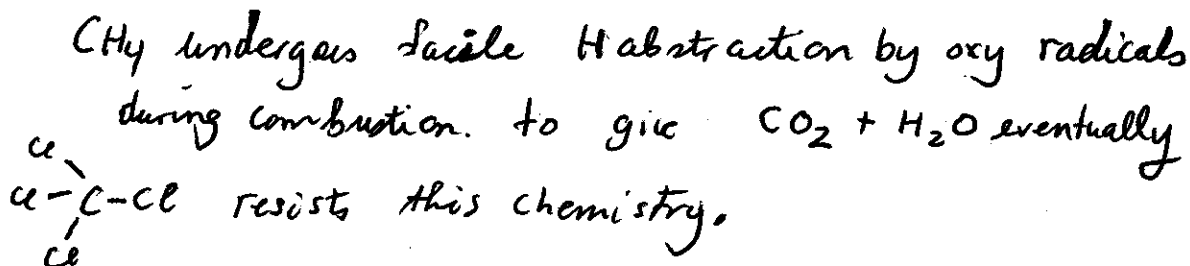 CH4 undergoes facile H abstraction by oxy radicals
during combustion. to give CO2 + H2O eventually
Cl
Cl-C-Cl resists this chemistry.
Cl